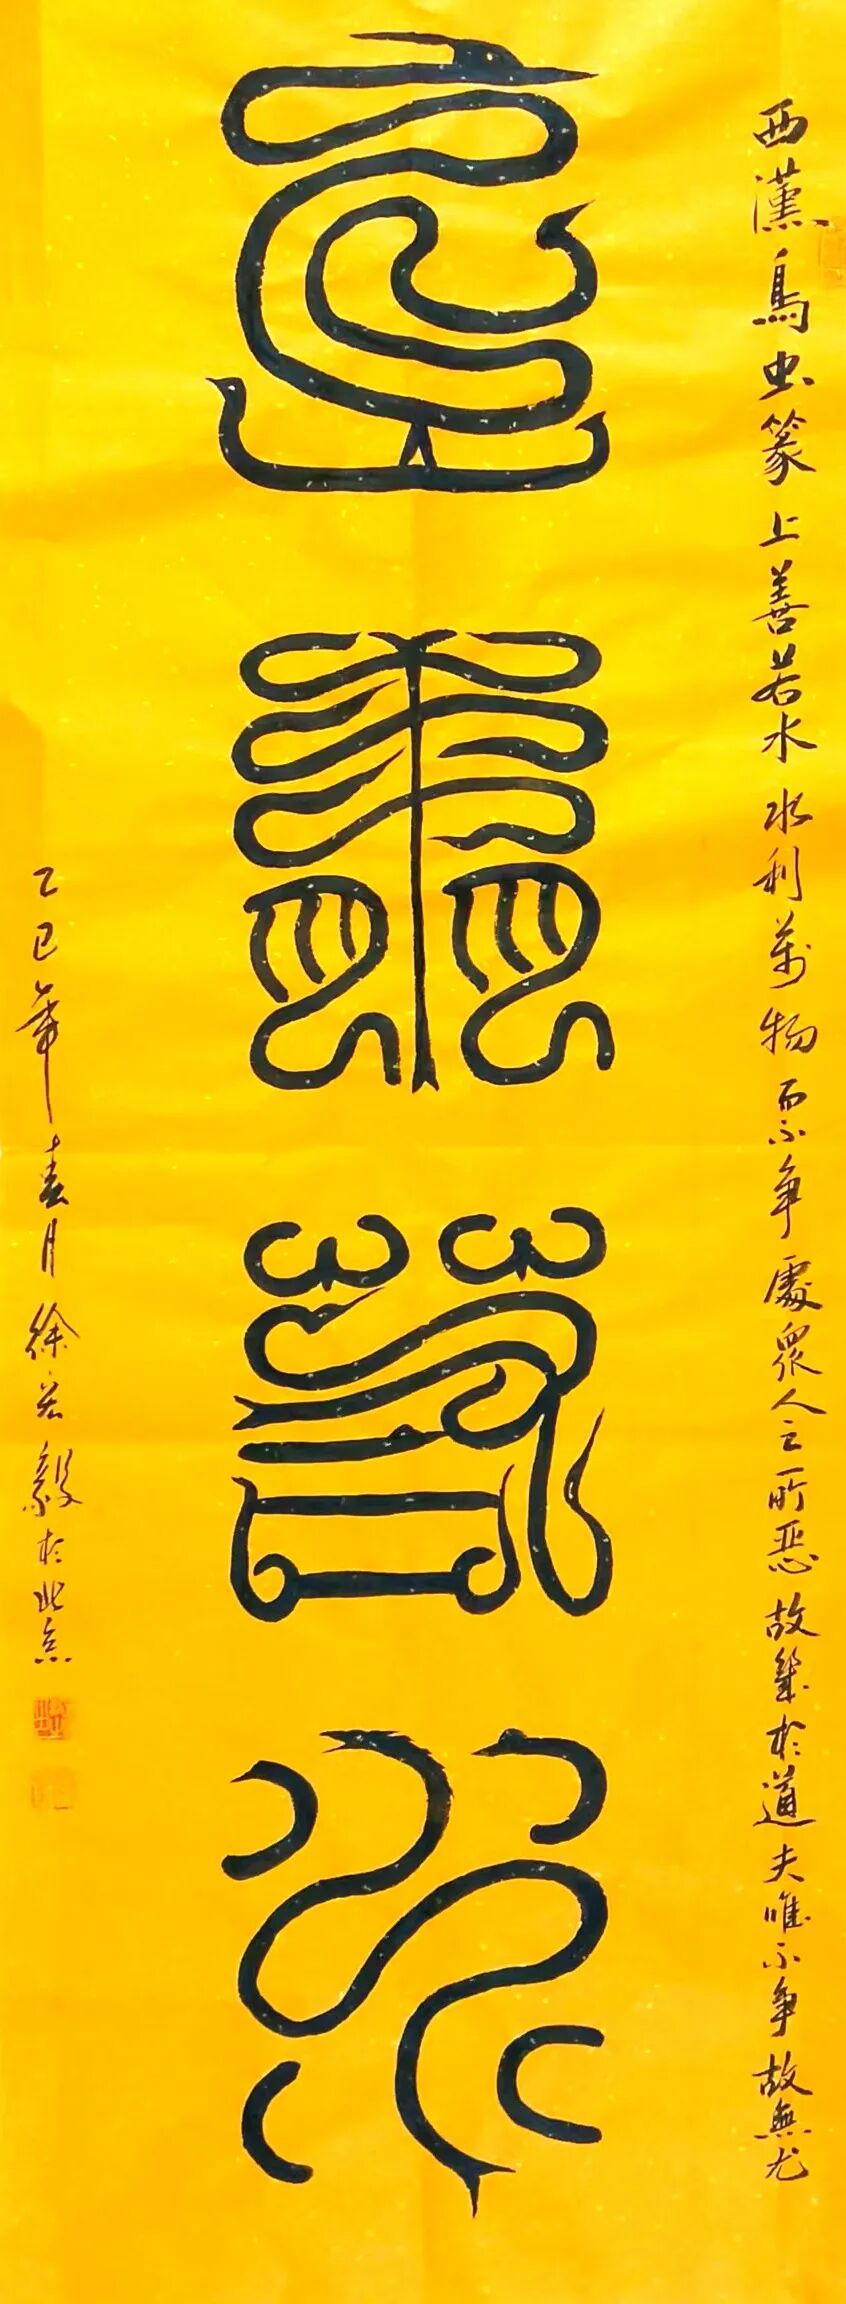 西漢鳥虫篆 上善若水 水利萬物而不争 處衆人之所恶 故幾於道 夫唯不争 故無尤
上善若水
乙巳年春月徐宏毅於北京